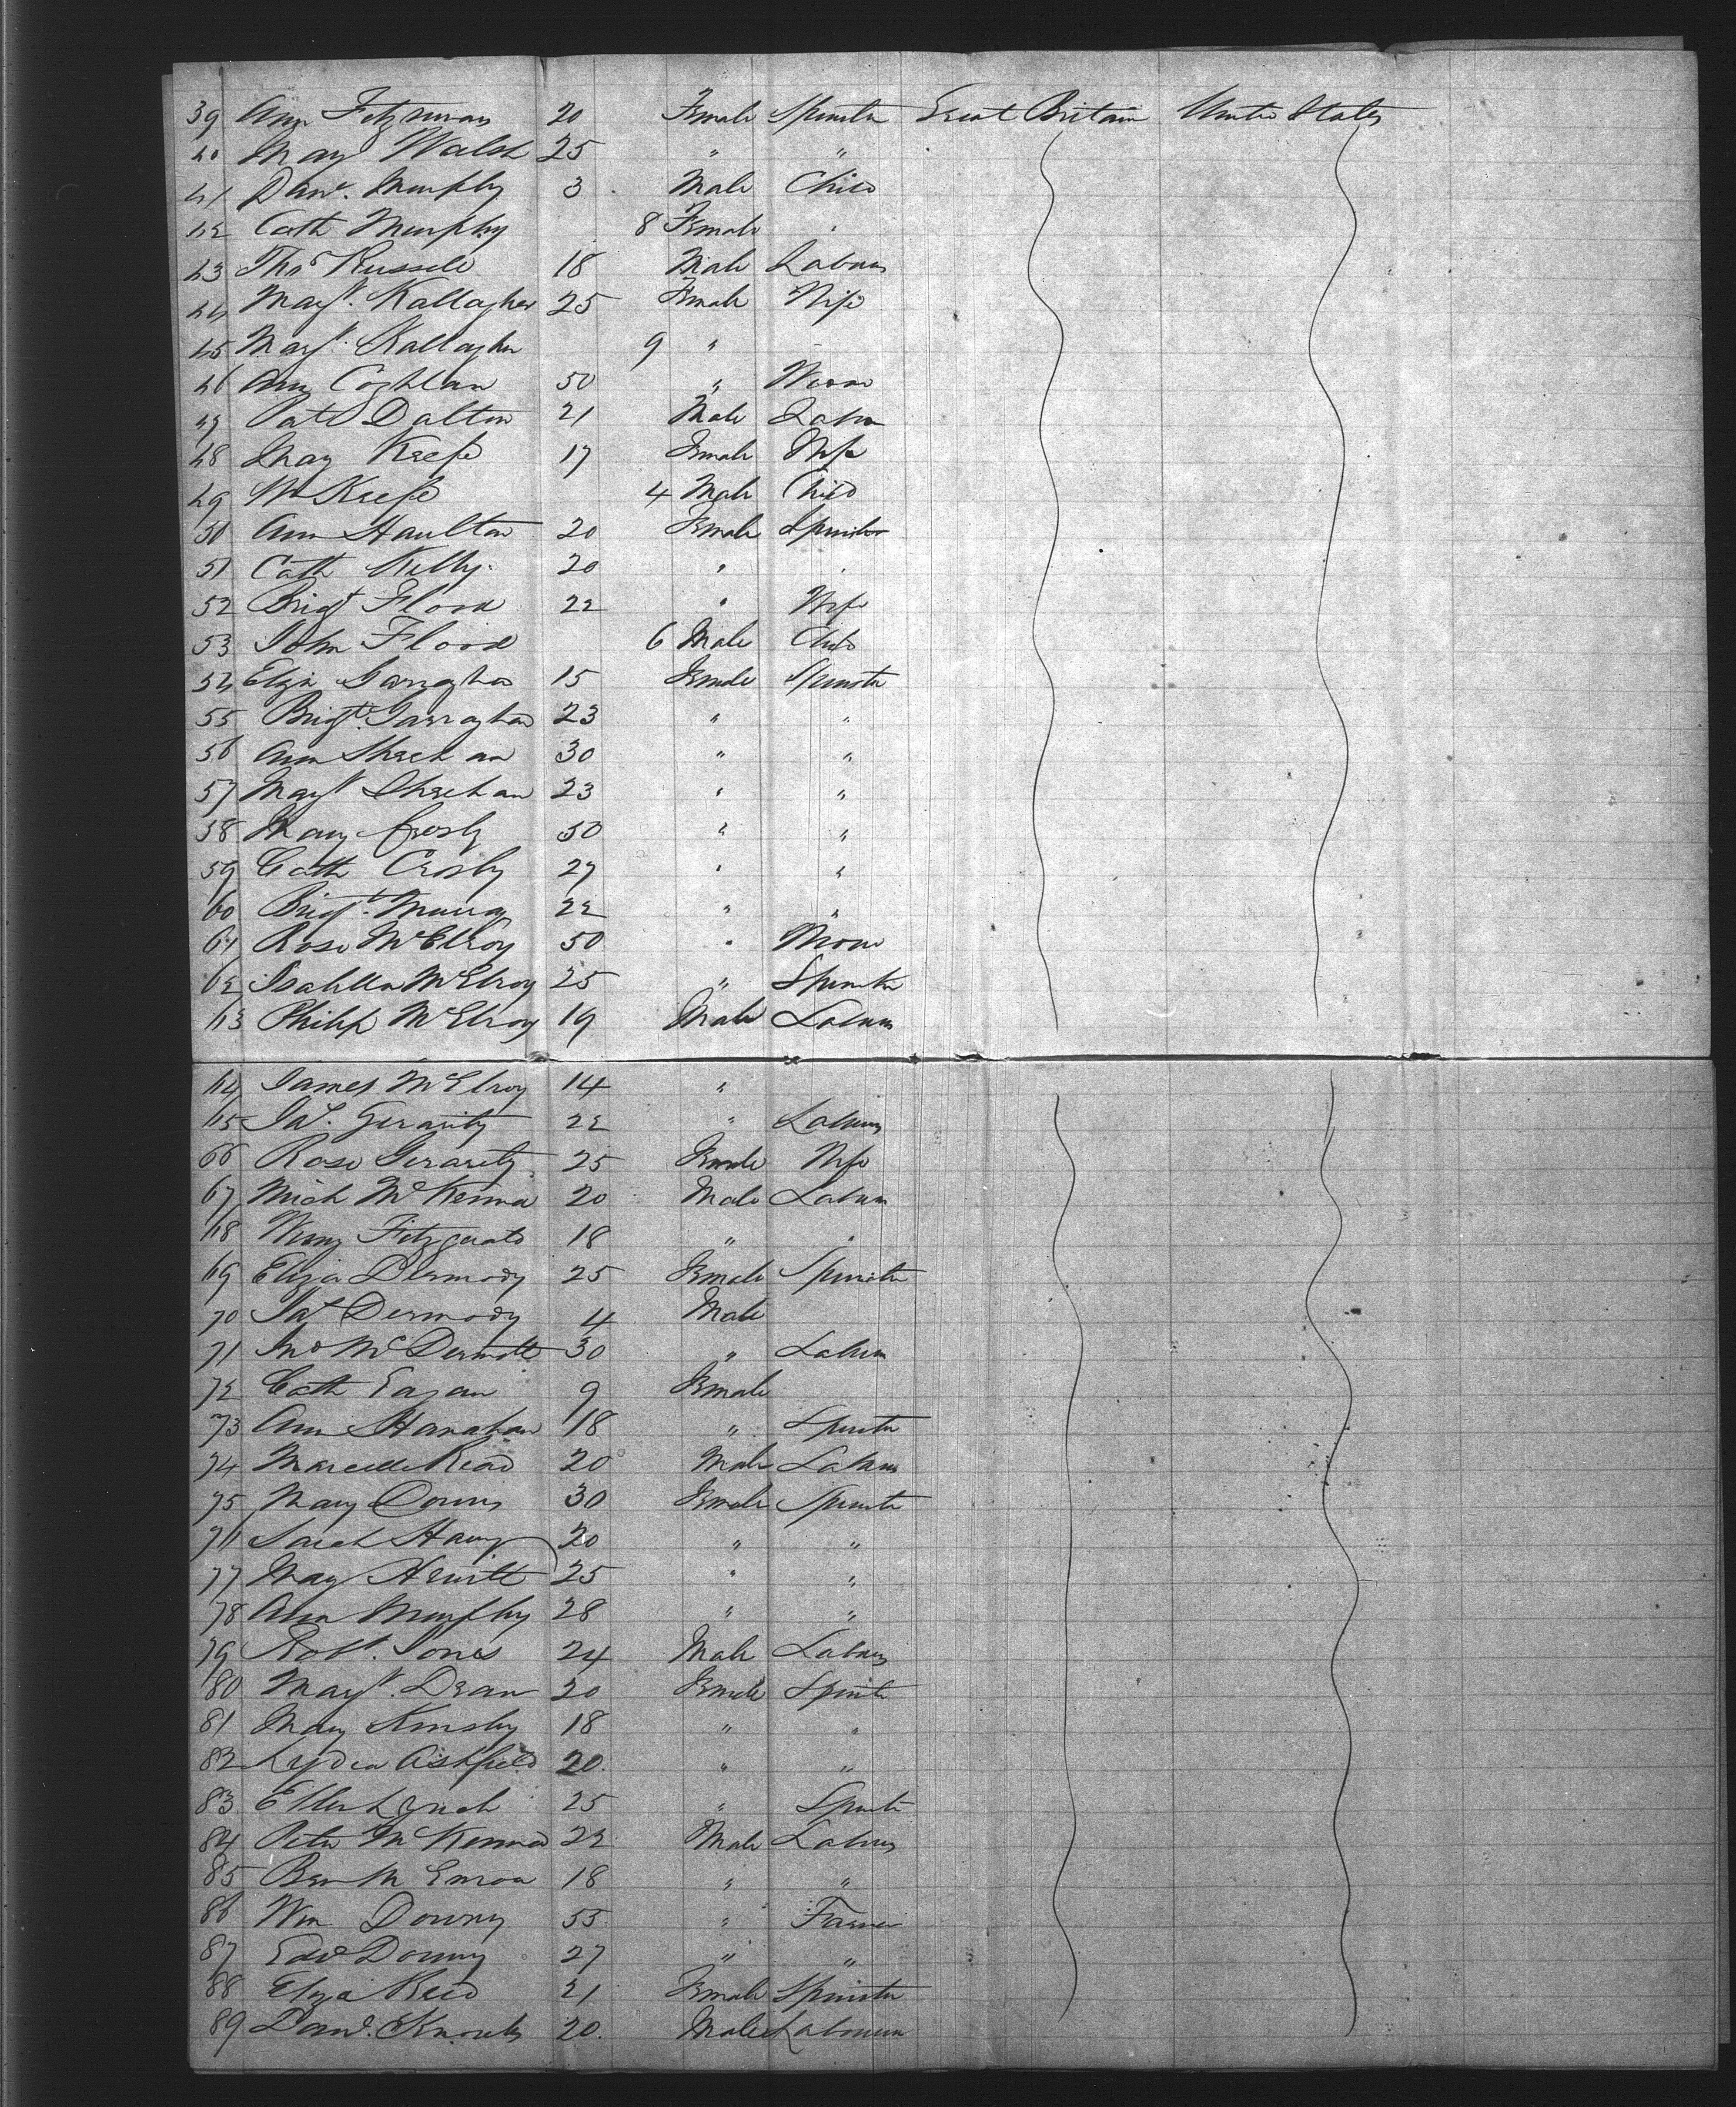 39 Ann 20 Female Spinster Great Britain United States
40 Mary Walsh 25 " "
41 Danl. Murphy 3 Male Child
42 Cath Murphy 8 Female "
43 Thos Russell 18 Male Labourer
44 Margt. Kallagher 25 Female Wife
45 Margt. Kallagher 9 "
46 Ann Coghlan 50 "
47 Patk Dalton 21 Male Labour
48 Mary Keefe 17 Female Wife
49 Wm Keefe 4 Male Child
50 Ann Haulton 20 Female Spinster
51 Cath Kelly 20 " "
52 Brigt Flood 22 " Wife
53 John Flood 6 Male Child
54 Eliza 15 Female Spinster
55 Brigt. 23 " "
56 Ann Sheehan 30 " "
57 Margt Sheehan 23 " "
58 Mary Crosby 50 " "
59 Cath Crosby 27 " "
60 Brigt. Murray 22 " "
61 Rose McElroy 50 "
62 Isabella McElroy 25 " Spinster
63 Philip McElroy 19 Male Labour
64 James McElroy 14 "
65 Jas. Gerarity 22 " Labour
66 Rose Gerarity 25 Female Wife
67 Mich McKenna 20 Male Labour
68 Fitzgerald 18 " "
69 Eliza Dermody 25 Female Spinster
70 Dermody 4 Male
71 Jno McDermott 30 " Labour
72 Cath Eagan 9 Female
73 Ann Hanahan 18 " Spinster
74 Marcella Read 20 Male Labour
75 Mary Downs 30 Female Spinster
76 Sarah 20 " "
77 Mary Hewitt 25 " "
78 Ann Murphy 28 " "
79 Robt. Jones 24 Male Labour
80 Margt. Dean 20 Female Spinster
81 Mary 18 " "
82 Lydia Ashfield 20 " "
83 Ellen Lynch 25 " Spinster
84 Peter McKenna 22 Male Labour
85 18 " "
86 Wm Downy 55 " Farmer
87 Edwd Downy 27 " "
88 Eliza Reed 21 Female Spinster
89 Danl. 20 Male Labourer